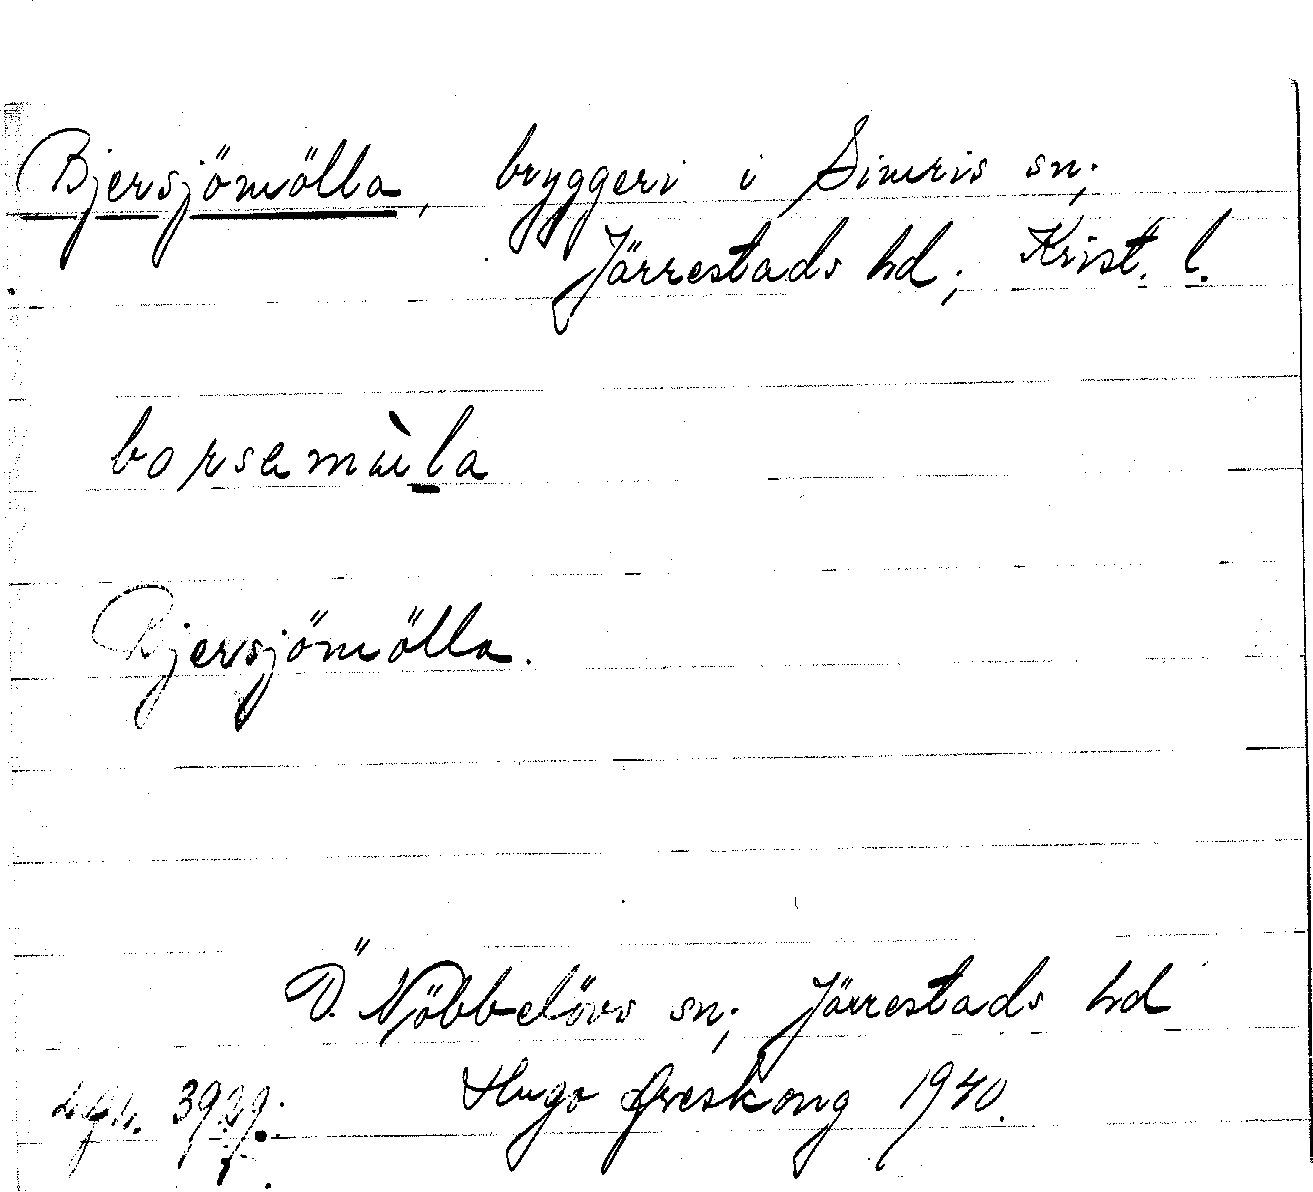 Bjersjömölla, bryggeri i Simris sn;
Järrestads hd; Krist. l.
Bjersjömölla.
Ö. Nöbbelövs sn; Järrestads hd
Hugo Areskoug 1940.